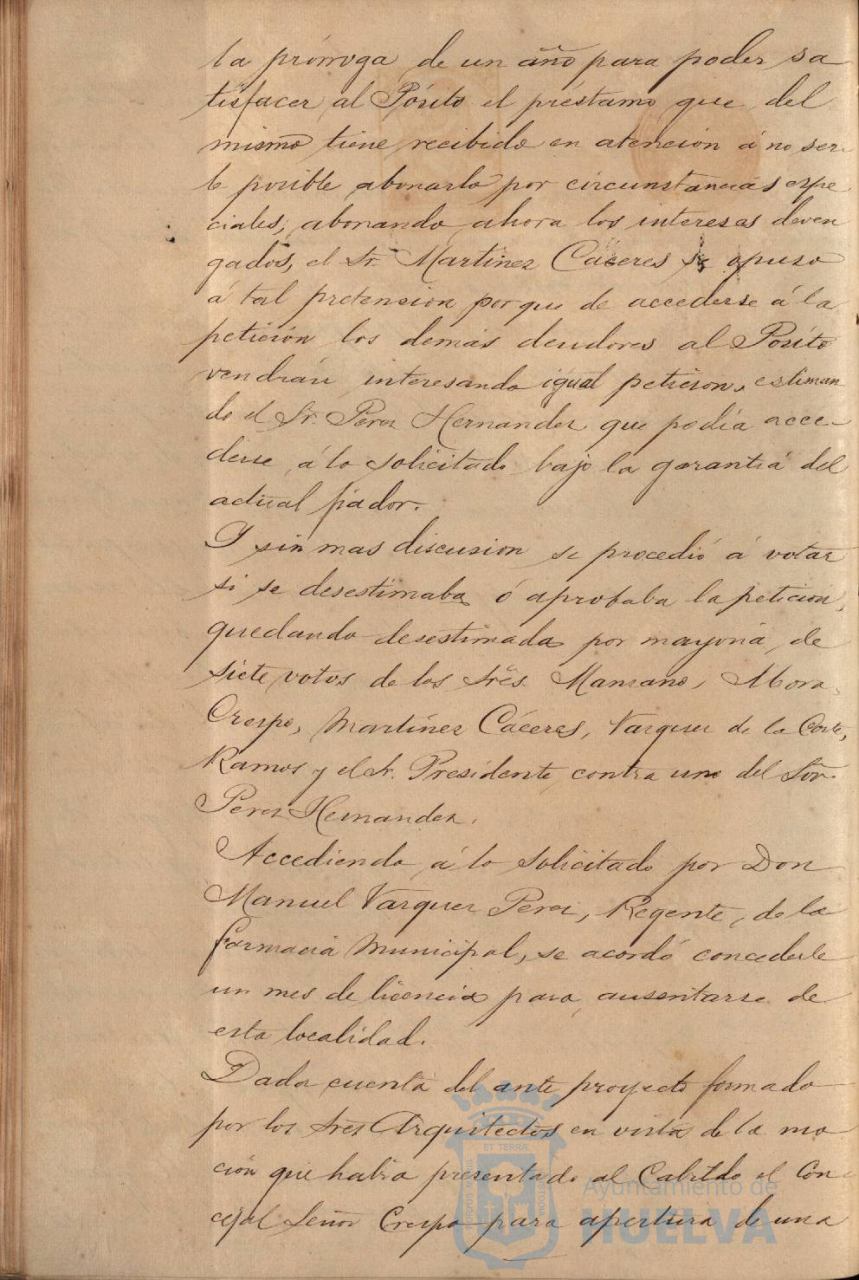 la prórroga de un año para poder sa
tisfacer al Pósito el préstamo que del
mismo tiene recibido en atención á no ser
le posible abonarlo por circunstancias espe
ciales, abonando ahora los intereses deven
gados, el Sr. Martinez Cáceres se opuso
á tal pretension porque de accederse á la
petición los demás deudores al Pósito
vendrían interesando igual peticion, estiman
do el Sr. Perez Hernandez que podía acce-
derse á lo solicitado bajo la garantía del
actual fiador.
Y sin mas discusion se procedió á votar
si se desestimaba ó aprobaba la peticion,
quedando desestimada por mayoria de
siete votos de los Srēs Manzano, Mora,
Crespo, Martínez Cáceres, Vazquez de la Corte,
Ramos y el Sr. Presidente contra uno del Sōr
Perez Hernandez.
Accediendo á lo solicitado por Don
Manuel Vazquez Perez, Regente de la
farmacia Municipal, se acordó concederle
un mes de licencia para ausentarse de
esta localidad.
Dada cuenta del ante proyecto formado
por los Sres Arquitectos en vista de la mo
ción que había presentado al Cabildo el Con
cejal Señor Crespo para apertura de una
ET TERRA
Ayuntamiento de
HUELVA